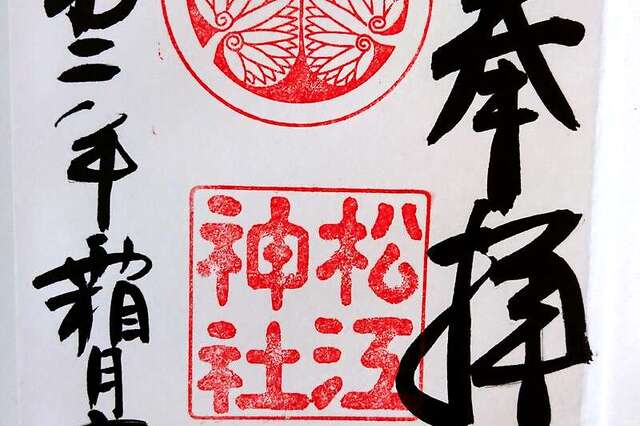 奉拝
松江
神社
二年霜月